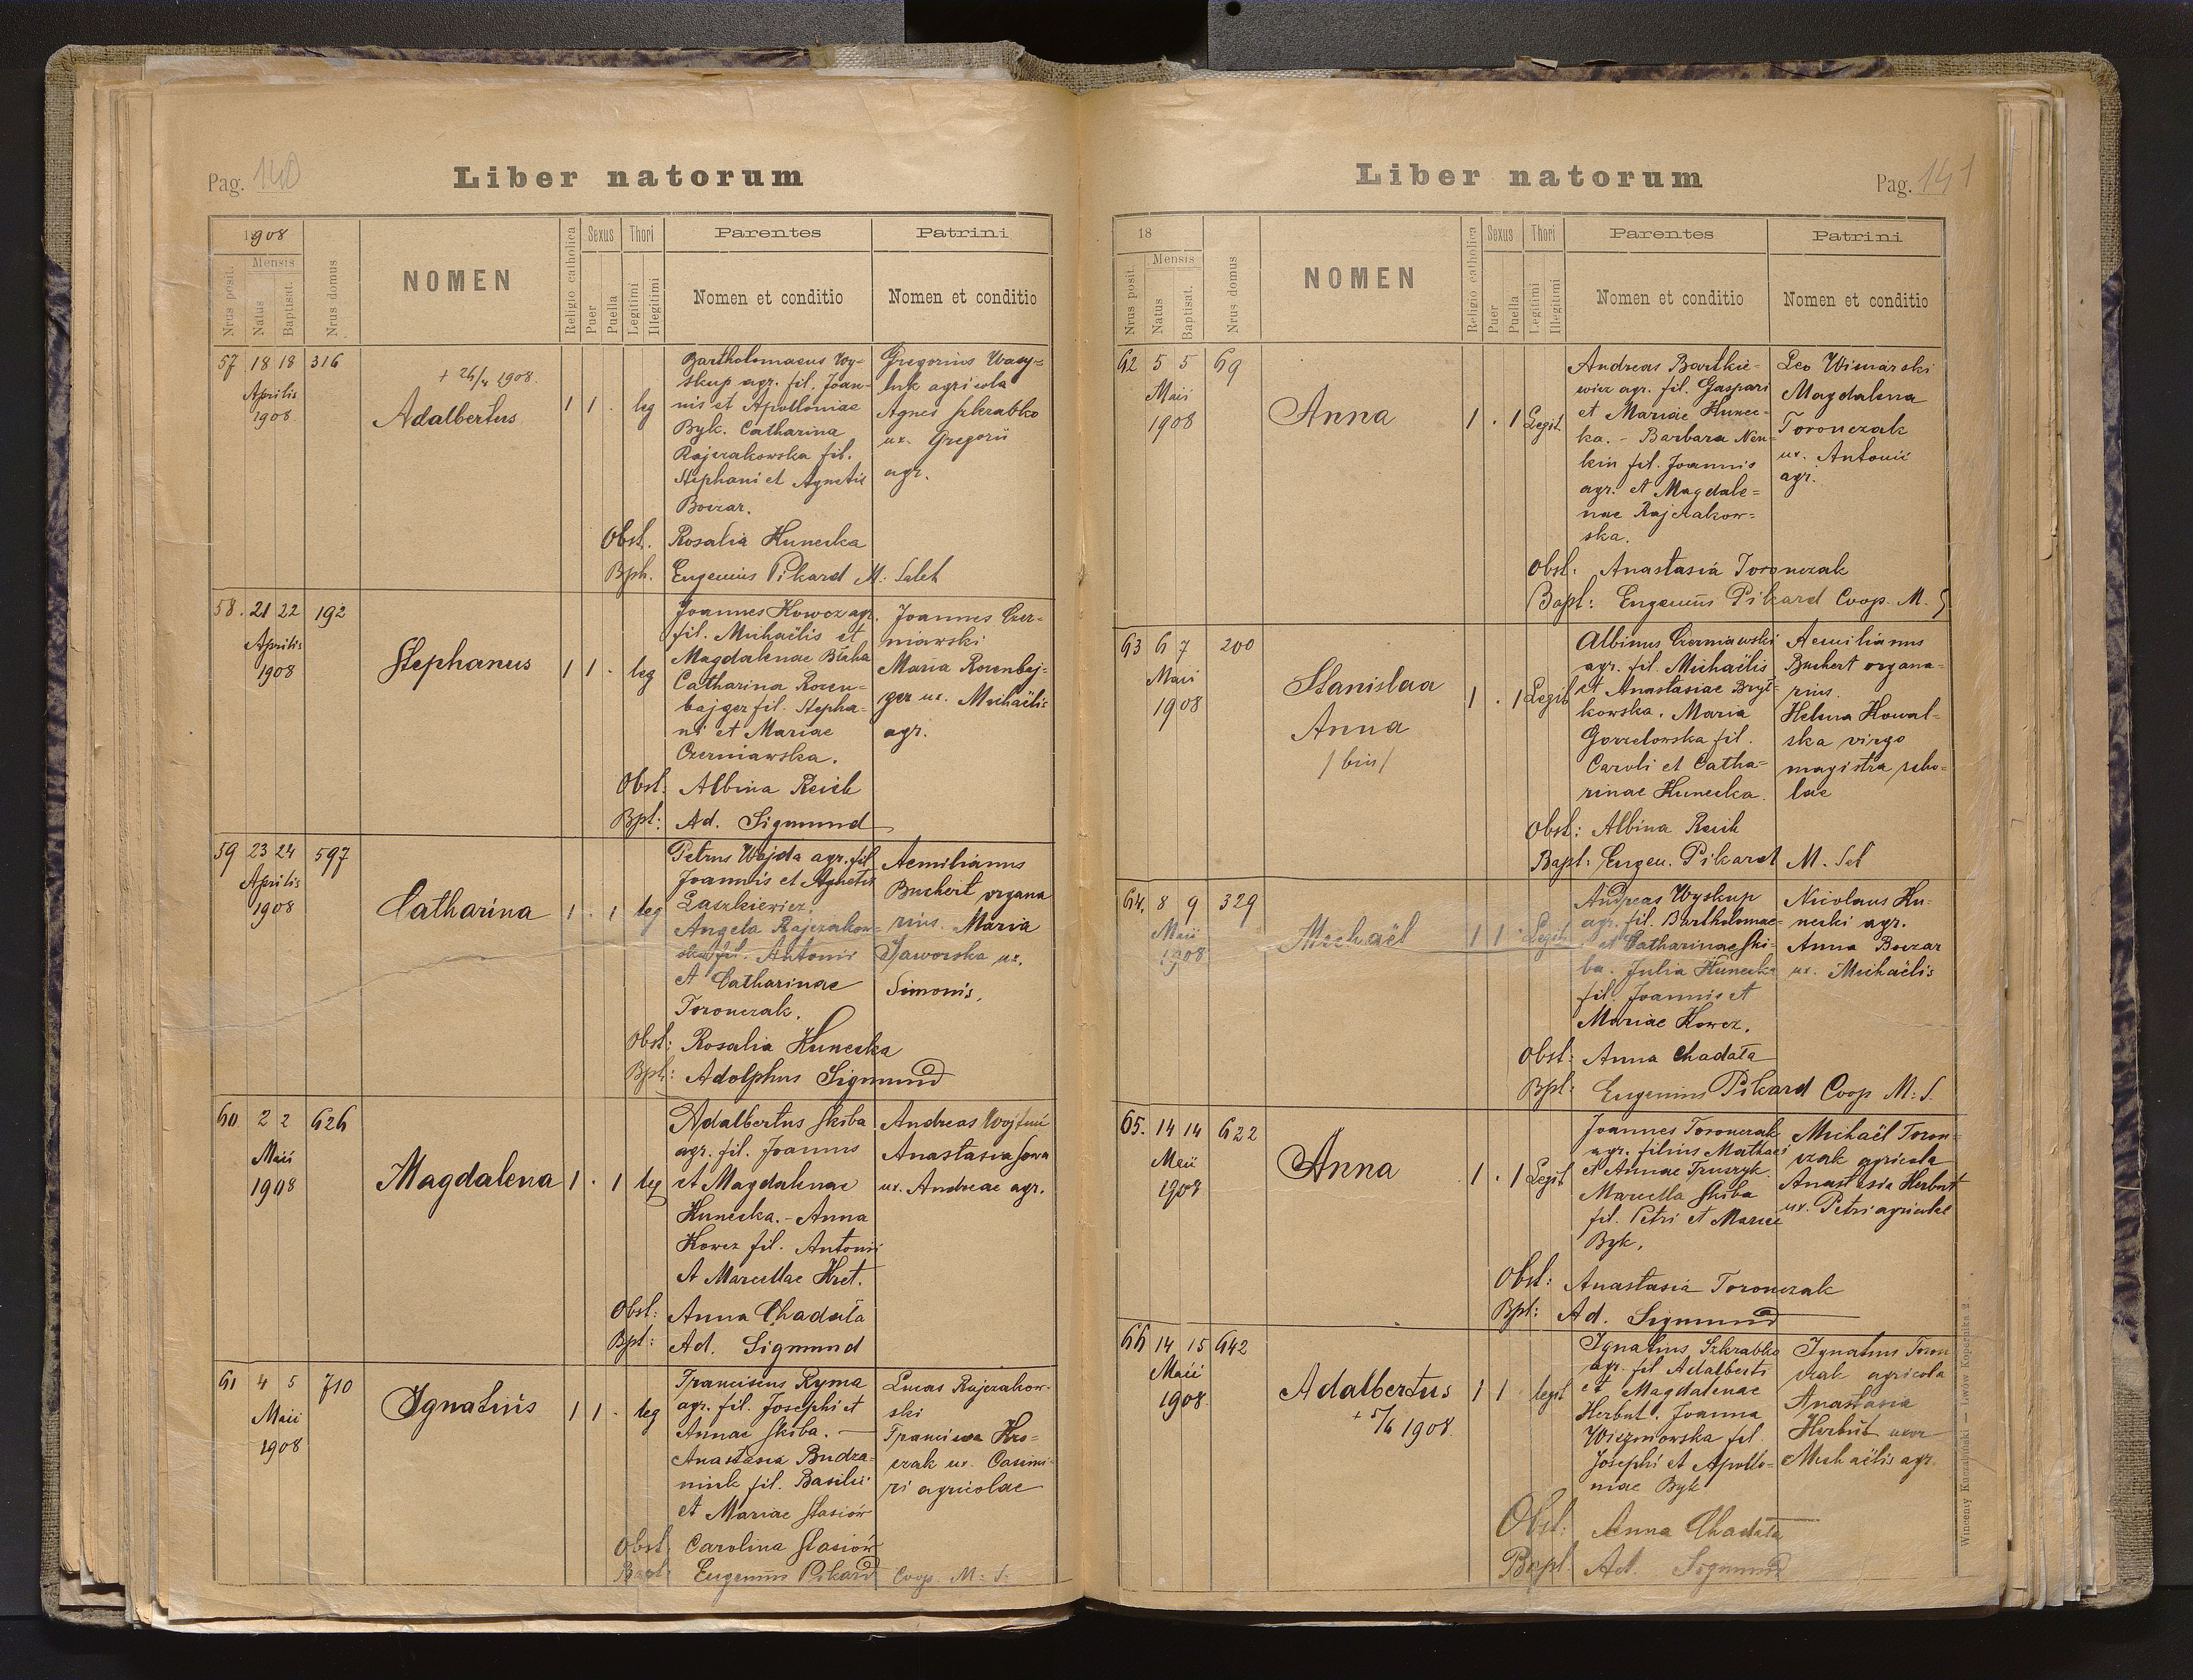 Pag. 140
Liber natorum
1908
Nrus posit.
Mensis
Natus
Baptisat.
Nrus domus
NOMEN
Religio catholica
Sexus
Puer
Puella
Thori
Legitimi
Illegitimi
Parentes
Nomen et conditio
Patrini
Nomen et conditio
57 18 18 316
Aprilis
1908
+ 24/4 1908.
Adalbertus
1 1 . leg
Bartholomaeus Wy-
skup agr. fil. Joan-
nis et Apolloniae
Byk. Catharina
Rajczakowska fil.
Stephani et Agnetis
Boczar.
Gregorius Wasy-
luk agricola
Agnes Szkrabko
ux. Gregorii
agr.
Obst. Rosalia Hunecka
Bpt. Eugenius Pikard M: Salet
58. 21 22 192
Aprilis
1908
Stephanus
1 1 . leg
Joannes Kowcz agr.
fil. Michaëlis et
Magdalenae Błaha
Catharina Rozen-
bajger fil. Stepha-
ni et Mariae
Czerniawska.
Joannes Czer-
niawski
Maria Rozenbaj-
ger ux. Michaëlis
agr.
Obst: Albina Reich
Bpt: Ad. Sigmund
59 23 24 597
Aprilis
1908
Catharina
1 . 1 leg
Petrus Wajda agr. fil
Joannis et Agnetis
Laszkiewicz.
Angela Rajczakow-
ska fil. Antonii
et Catharinae
Toronczak.
Aemilianus
Buchert organa
rius. Maria
Jaworska ux.
Simonis.
Obst: Rosalia Hunecka
Bpt: Adolphus Sigmund
60 2 2 626
Maii
1908
Magdalena
1 . 1 leg
Adalbertus Skiba
agr. fil. Joannis
et Magdalenae
Hunecka. - Anna
Kowcz fil. Antonii
et Marcellae Hret.
Andreas
Anastasia Sowa
ux. Andreae agr.
Obst: Anna Chadała
Bpt: Ad. Sigmund
61 4 5 710
Maii
1908
Ignatius
1 1 . leg
Franciscus Ryma
agr. fil. Josephi et
Annae Skiba. -
Anastasia Budza-
niuk fil. Basilii
et Mariae Stasiów
Lucas Rajczakow-
ski
Francisca Hro-
czak ux. Casimi-
ri agricolae
Obst: Carolina Stasiów
Bapt: Eugenius Pikard Coop. M: S.
Liber natorum
Pag. 141
18
Nrus posit.
Mensis
Natus
Baptisat.
Nrus domus
NOMEN
Religio catholica
Sexus
Puer
Puella
Thori
Legitimi
Illegitimi
Parentes
Nomen et conditio
Patrini
Nomen et conditio
62 5 5 69
Maii
1908
Anna
1 . 1 Legit.
Andreas Bartkie-
wicz agr. fil. Gaspari
et Mariae Hunec-
ka. - Barbara Nen-
kin fil. Joannis
agr. et Magdale-
nae Rajczakow-
ska.
Leo Winiarski
Magdalena
Toronczak
ux. Antonii
agr.
Obst: Anastasia Toronczak
Bapt: Eugenius Pikard Coop. M. S
63 6 7 200
Maii
1908
Stanislaa
Anna
/bin/
1 . 1 Legit
Albinus Czerniawski
agr. fil. Michaëlis
et Anastasiae Bryt-
kowska. Maria
Gorzelowska fil.
Caroli et Catha-
rinae Hunecka.
Aemilianus
Buchert organa-
rius.
Helena Kowal-
ska virgo
magistra scho-
lae
Obst: Albina Reich
Bapt: Eugen. Pikard M. Sel
64. 8 9 329
Maii
1908
Michaël
1 1 . Legit
Andreas Wyskup
agr. fil. Bartholomae-
et Catharinae Ski-
ba. Julia Hunecka
fil. Joannis et
Mariae Kowcz.
Nicolaus Hu-
necki agr.
Anna Boczar
ux. Michaëlis
Obst: Anna Chadała
Bpt: Eugenius Pikard Coop M: S.
65. 14 14 622
Maii
1908
Anna
1 . 1 Legit
Joannes Toronczak
agr. filius Mathaei
et Annae Truszyk.
Marcella Skiba
fil. Petri et Mariae
Byk.
Michaël Toron-
czak agricola
Anastasia Herbut
ux. Petri agricolae
Obst: Anastasia Toronczak
Bpt: Ad. Sigmund
66 14 15 642
Maii
1908
Adalbertus
+ 5/6 1908.
1 1 . legit
Ignatius Szkrabko
agr. fil Adalberti
et Magdalenae
Herbut. Joanna
fil.
Josephi et Apollo-
niae Byk
Ignatius Toron
czak agricola
Anastasia
Herbut uxor
Michaëlis agr.
Obst: Anna Chadała
Bapt. Ad. Sigmund
Wincenty Kuczabiński — Lwów Kopernika 2.